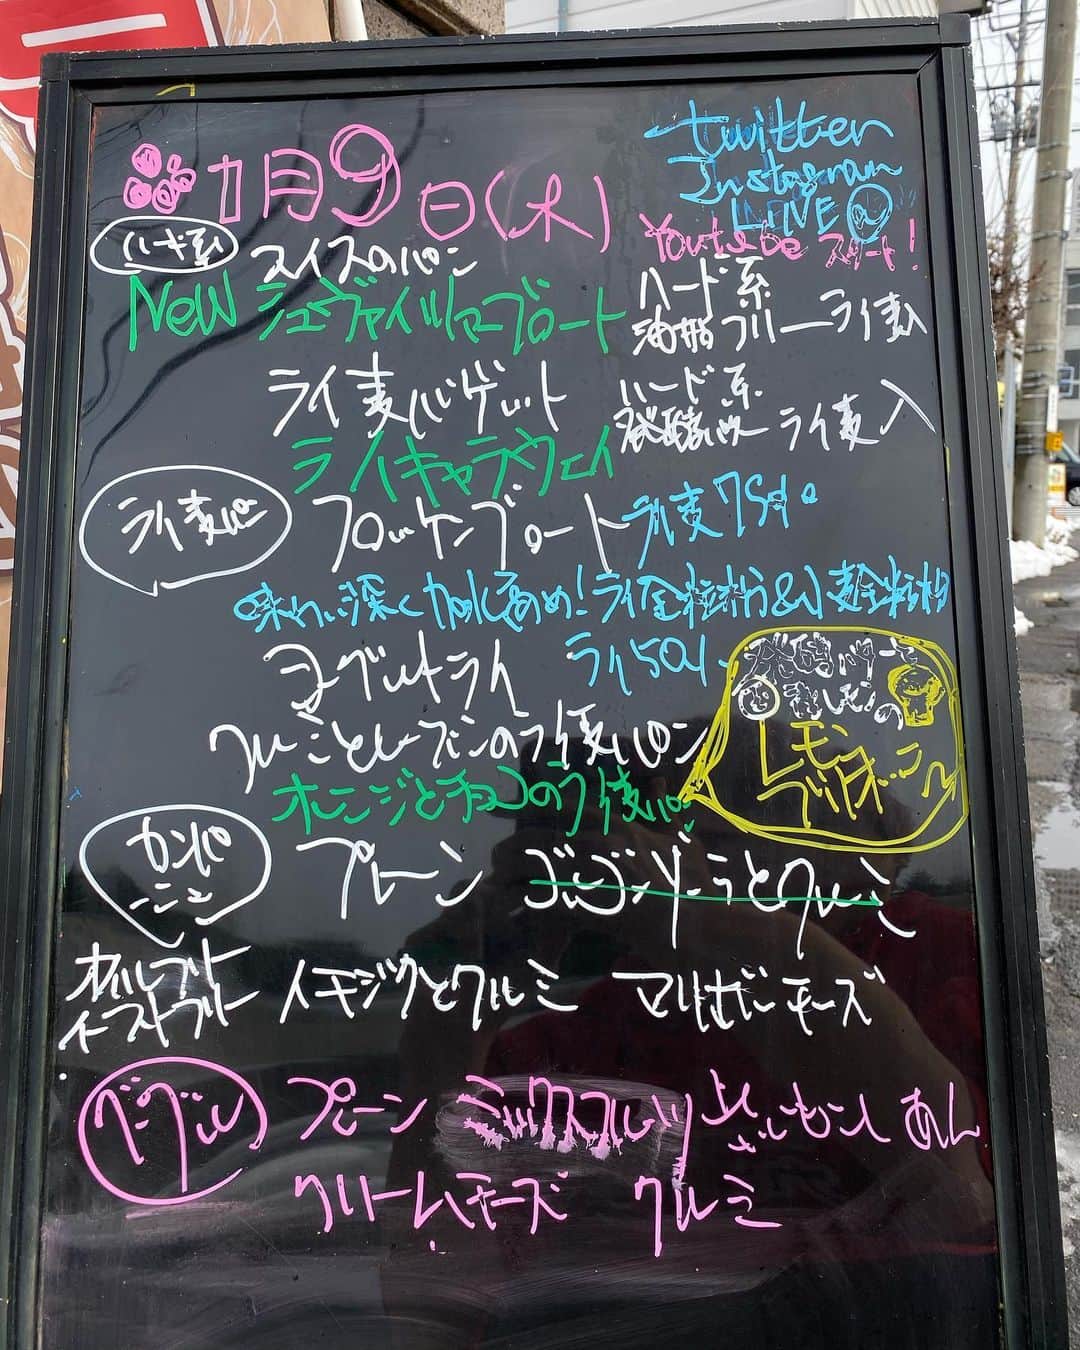 1月9日(木)
twitter
Instagram
LIVE
Youtube スタート!
ハード系
スイスのパン
New シュヴァイツァーブロート
ハード系
油脂フリーライ麦入
ライ麦バゲット
ハード系
発酵バター ライ麦入
ライ麦パン
ライキャラウェイ
フロッケンブロート ライ麦75%
味わい深く加水高め!ライ全粒粉&小麦全粒粉
ヨーグルトライ ライ50%
クルミとレーズンのライ麦パン
オレンジとチョコのライ麦パン
発酵バター
レモンの
レモン
ブリオッシュ
カンパーニュ
プレーン ゴルゴンゾーラとクルミ
オイルフリー
イーストフリー
イチジクとクルミ マリボーチーズ
ベーグル
プレーン ミックスフルーツ あん
クリームチーズ クルミ